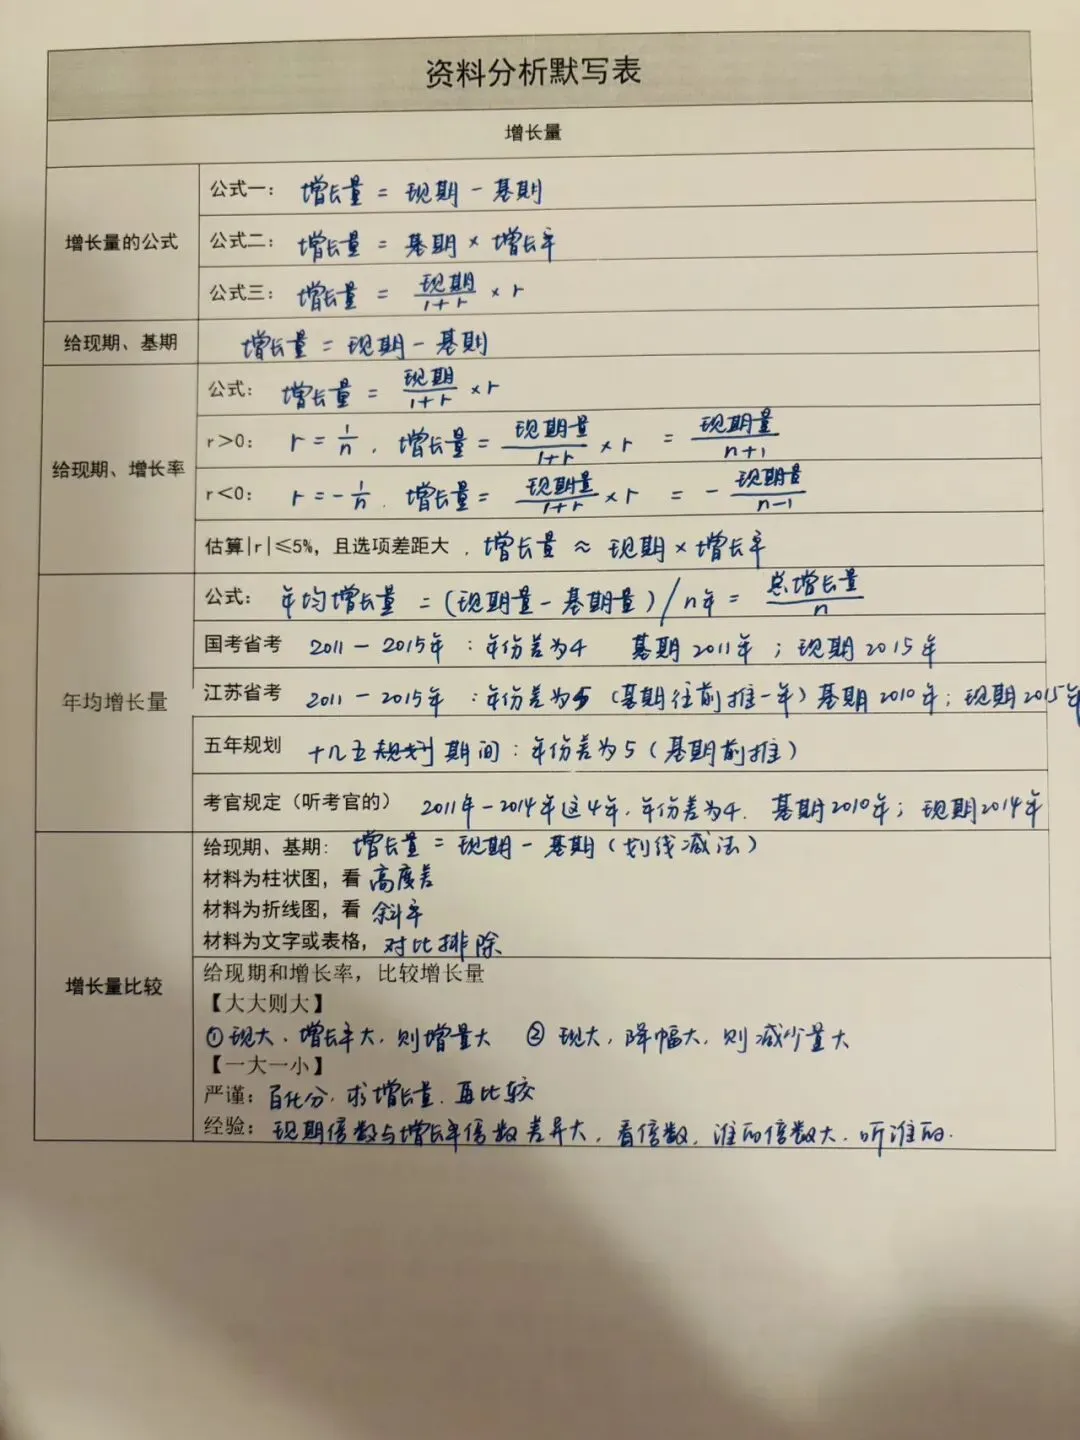 资料分析默写表
增长量
增长量的公式
公式一: 增长量 = 现期 - 基期
公式二: 增长量 = 基期 × 增长率
公式三: 增长量 = 现期/1+r × r
给现期、基期
增长量 = 现期 - 基期
给现期、增长率
公式: 增长量 = 现期/1+r × r
r>0: r = 1/n . 增长量 = 现期量/1+r × r = 现期量/n+1
r<0: r = -1/n . 增长量 = 现期量/1+r × r = - 现期量/n-1
估算|r|≤5%, 且选项差距大 . 增长量 ≈ 现期 × 增长率
年均增长量
公式: 年均增长量 = (现期量 - 基期量) / n年 = 总增长量/n
国考省考 2011 - 2015年 : 年份差为4 基期 2011年 ; 现期 2015年
江苏省考 2011 - 2015年 : 年份差为5 (基期往前推一年) 基期 2010年; 现期 2015年
五年规划 十几五规划期间: 年份差为5 (基期前推)
考官规定 (听考官的) 2011年-2014年这4年, 年份差为4. 基期2010年; 现期2014年
增长量比较
给现期、基期: 增长量 = 现期 - 基期 (划线减法)
材料为柱状图, 看 高度差
材料为折线图, 看 斜率
材料为文字或表格, 对比排除
给现期和增长率, 比较增长量
【大大则大】
①现大、增长率大, 则增量大 ② 现大, 降幅大, 则减少量大
【一大一小】
严谨: 百化分, 求增长量, 再比较
经验: 现期倍数与增长率倍数差异大, 看倍数, 谁的倍数大, 听谁的.